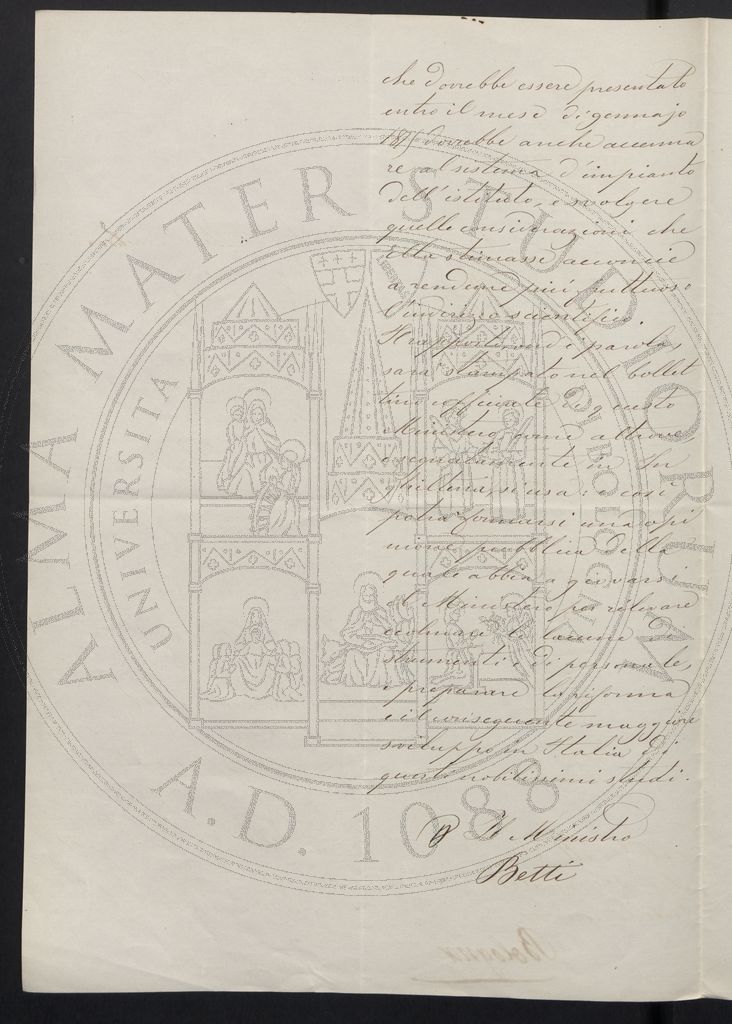 che dovrebbe essere presentato
entro il mese di gennajo
187 dovrebbe anche accenna
re al sistema d'impianto
dell'istituto, e svolgere
quelle considerazioni che
Ella stimasse acconcie
a rendere più fruttuoso
l'indirizzo scientifico.
Il rapporto ond'è parola,
sarà stampato nel bollet
tino officiale di questo
Ministero, come altrove
e segnatamente in In
ghilterra, si usa: e così
potrà formarsi una opi
nione pubblica della
quale abbia a giovarsi
il Ministero per rilevare
e colmare le lacune di
strumenti e di personale,
e preparare la riforma
e il conseguente maggiore
sviluppo in Italia di
questi nobilissimi studi.
Il Ministro
Betti
Bologna
ALMA MATER STUDIORUM
UNIVERSITA DI BOLOGNA
A.D. 1088